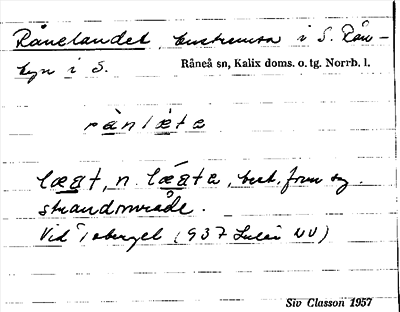 Rånelandet, bustremsa i S. Rån-
byn i S. Råneå sn, Kalix doms. o. tg. Norrb. l.
rànlæ̀ta
læat, n. læ̀ata, best. form sg.
strandområde.
Vid (937 Luleå NV)
Siv Classon 1957